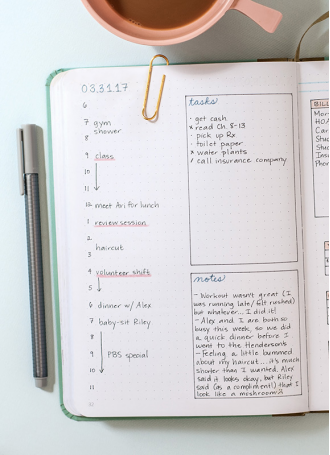 03.31.17
6
7 gym
8 shower
9 class
10
11
12 meet Ari for lunch
1 review session
2 haircut
3
4 volunteer shift
5
6 dinner w/ Alex
7 baby-sit Riley
8
9 PBS special
10
11
tasks
· get cash
× read Ch. 8-13
· pick up Rx
· toilet paper
× water plants
/ call insurance company
notes
- Workout wasn't great (I
was running late/felt rushed)
but whatever... I did it!
- Alex and I are both so
busy this week, so we did
a quick dinner before I
went to the Hendersons
- Feeling a little bummed
about my haircut... it's much
shorter than I wanted. Alex
said it looks okay, but Riley
said (as a compliment!) that I
look like a mushroom
BILL
Mor
HOA
Car
Stu
Stu
Insu
Phon